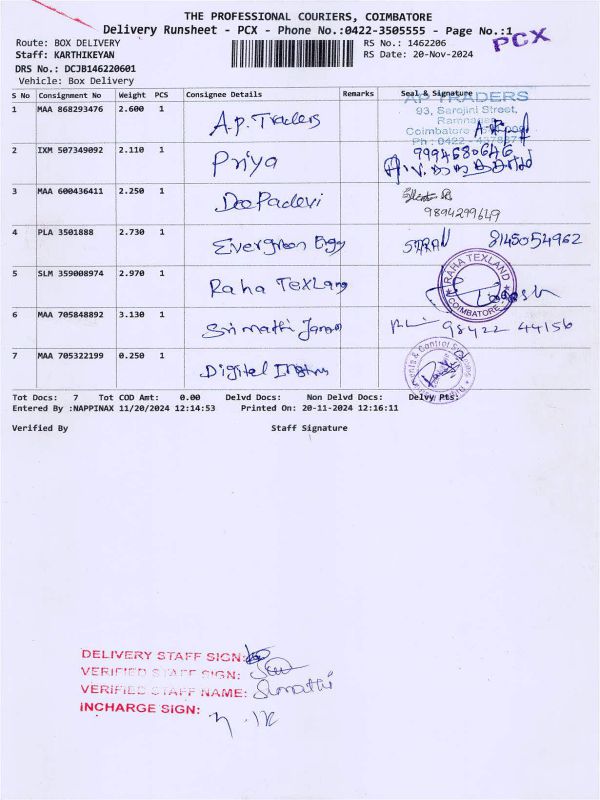 THE PROFESSIONAL COURIERS, COIMBATORE
Delivery Runsheet - PCX - Phone No.:0422-3505555 - Page No.:1
PCX
Route: BOX DELIVERY
RS No.: 1462206
Staff: KARTHIKEYAN
RS Date: 20-Nov-2024
DRS No.: DCJB146220601
Vehicle: Box Delivery
S No Consignment No Weight PCS Consignee Details Remarks Seal & Signature
1 MAA 868293476 2.600 1 A.P. Traders
AP TRADERS
93, Sarojini Street,
Ramnagar
Coimbatore
Ph : 0422 -
2 IXM 507349092 2.110 1 Priya 9994680646
3 MAA 600436411 2.250 1 DeePadevi
9894299649
4 PLA 3501888 2.730 1 Evergreen Engy 8145054962
5 SLM 359008974 2.970 1 Raha TexLang
RAHA TEXLAND
COIMBATORE
6 MAA 705848892 3.130 1 Srimathi 98422 44156
7 MAA 705322199 0.250 1 Digital
Tot Docs: 7 Tot COD Amt: 0.00 Delvd Docs: Non Delvd Docs: Delvy Pts:
Entered By :NAPPINAX 11/20/2024 12:14:53 Printed On: 20-11-2024 12:16:11
Verified By Staff Signature
DELIVERY STAFF SIGN:
VERIFIED STAFF SIGN:
VERIFIED STAFF NAME: Sumathi
INCHARGE SIGN: